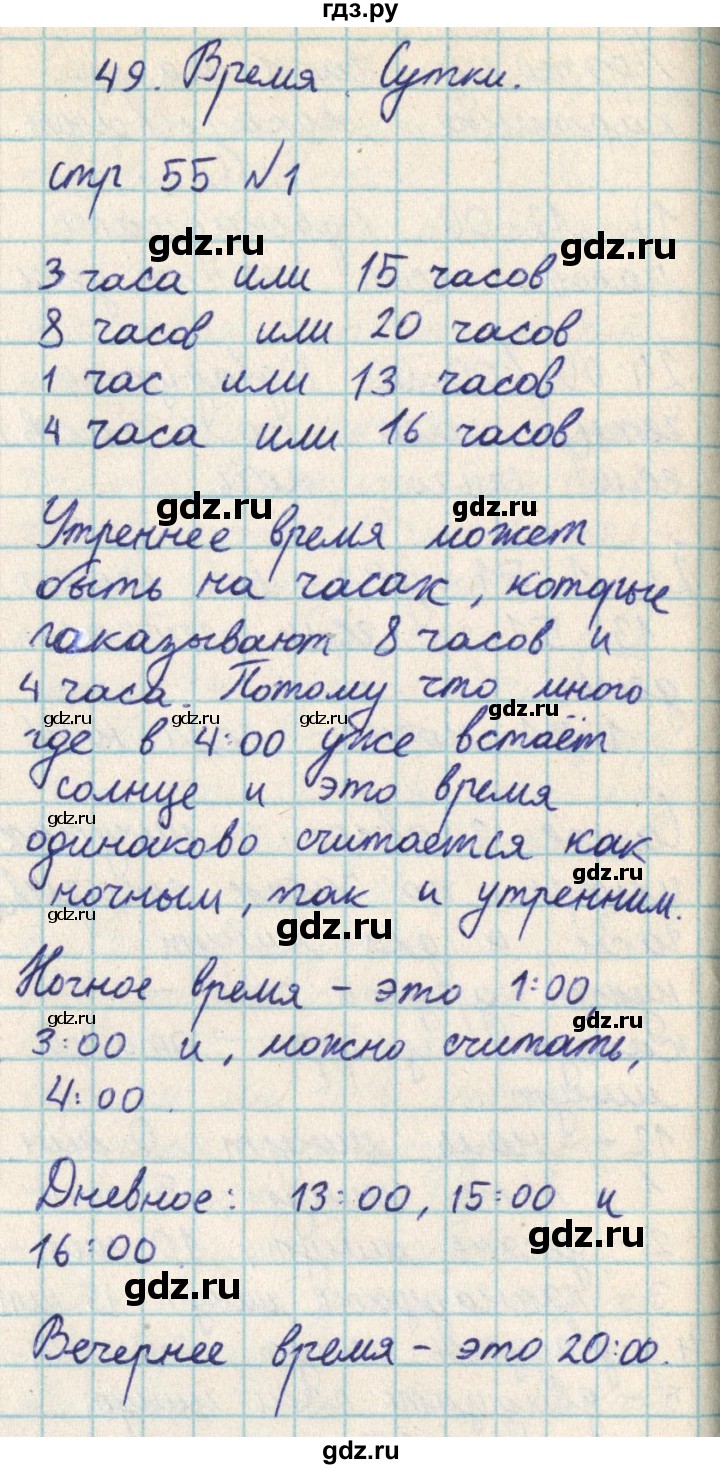 гдз.ру
49. Время. Сутки.
стр 55 №1
gdz.ru gdz.ru
3 часа или 15 часов
8 часов или 20 часов
1 час или 13 часов
4 часа или 16 часов
gdz.ru gdz.ru
Утреннее время может
быть на часах, которые
показывают 8 часов и
4 часа. Потому что много
gdz.ru gdz.ru gdz.ru gdz.ru
где в 4:00 уже встаёт
солнце и это время
gdz.ru
одинаково считается как
gdz.ru
ночным, так и утренним.
gdz.ru gdz.ru
Ночное время - это 1:00,
gdz.ru gdz.ru
3:00 и, можно считать,
4:00.
Дневное: 13:00, 15:00 и
gdz.ru
16:00.
gdz.ru
Вечернее время - это 20:00.
gdz.ru